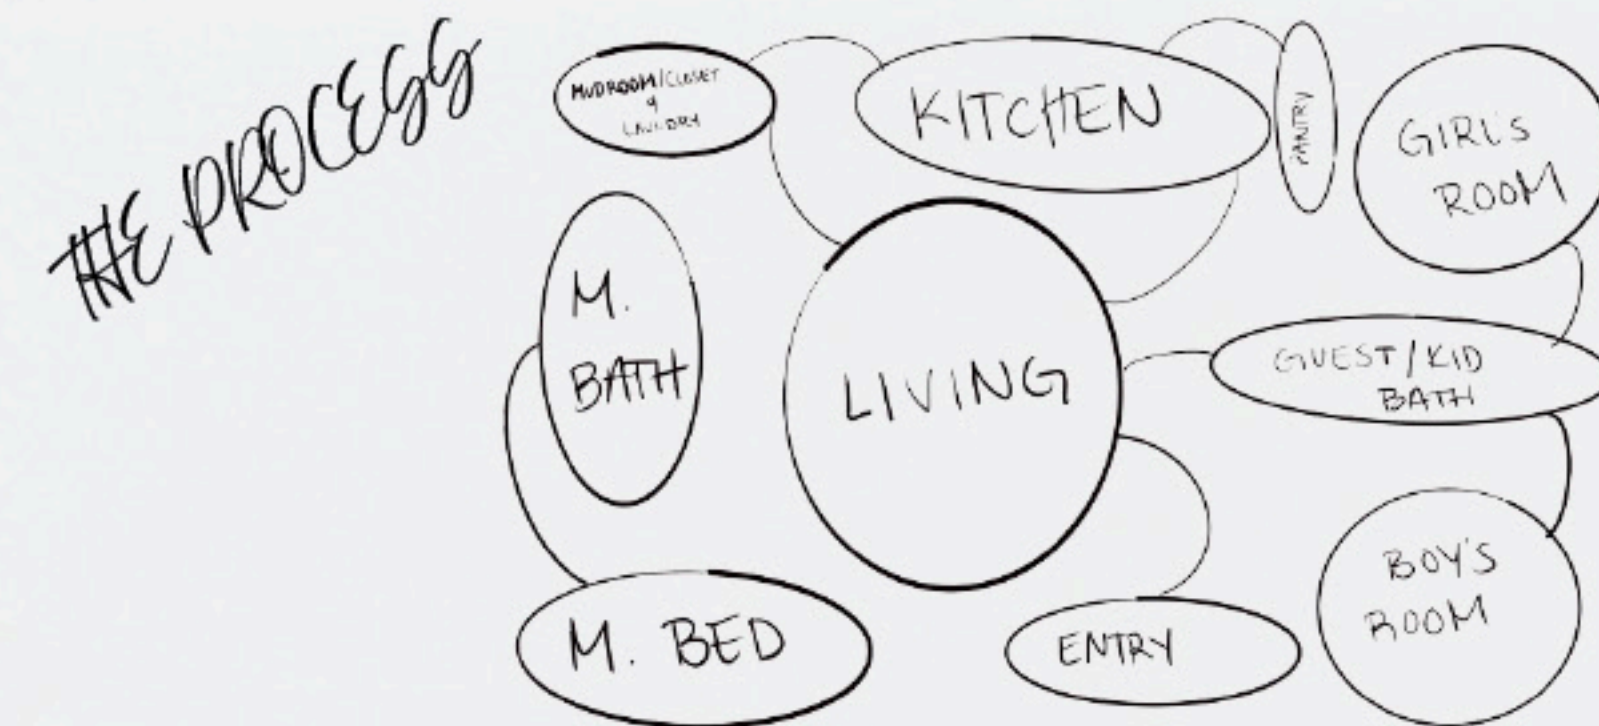 THE PROCESS
MUDROOM/CLOSET
&
LAUNDRY
KITCHEN
PANTRY
GIRL'S
ROOM
M.
BATH
LIVING
GUEST/KID
BATH
M. BED
ENTRY
BOY'S
ROOM